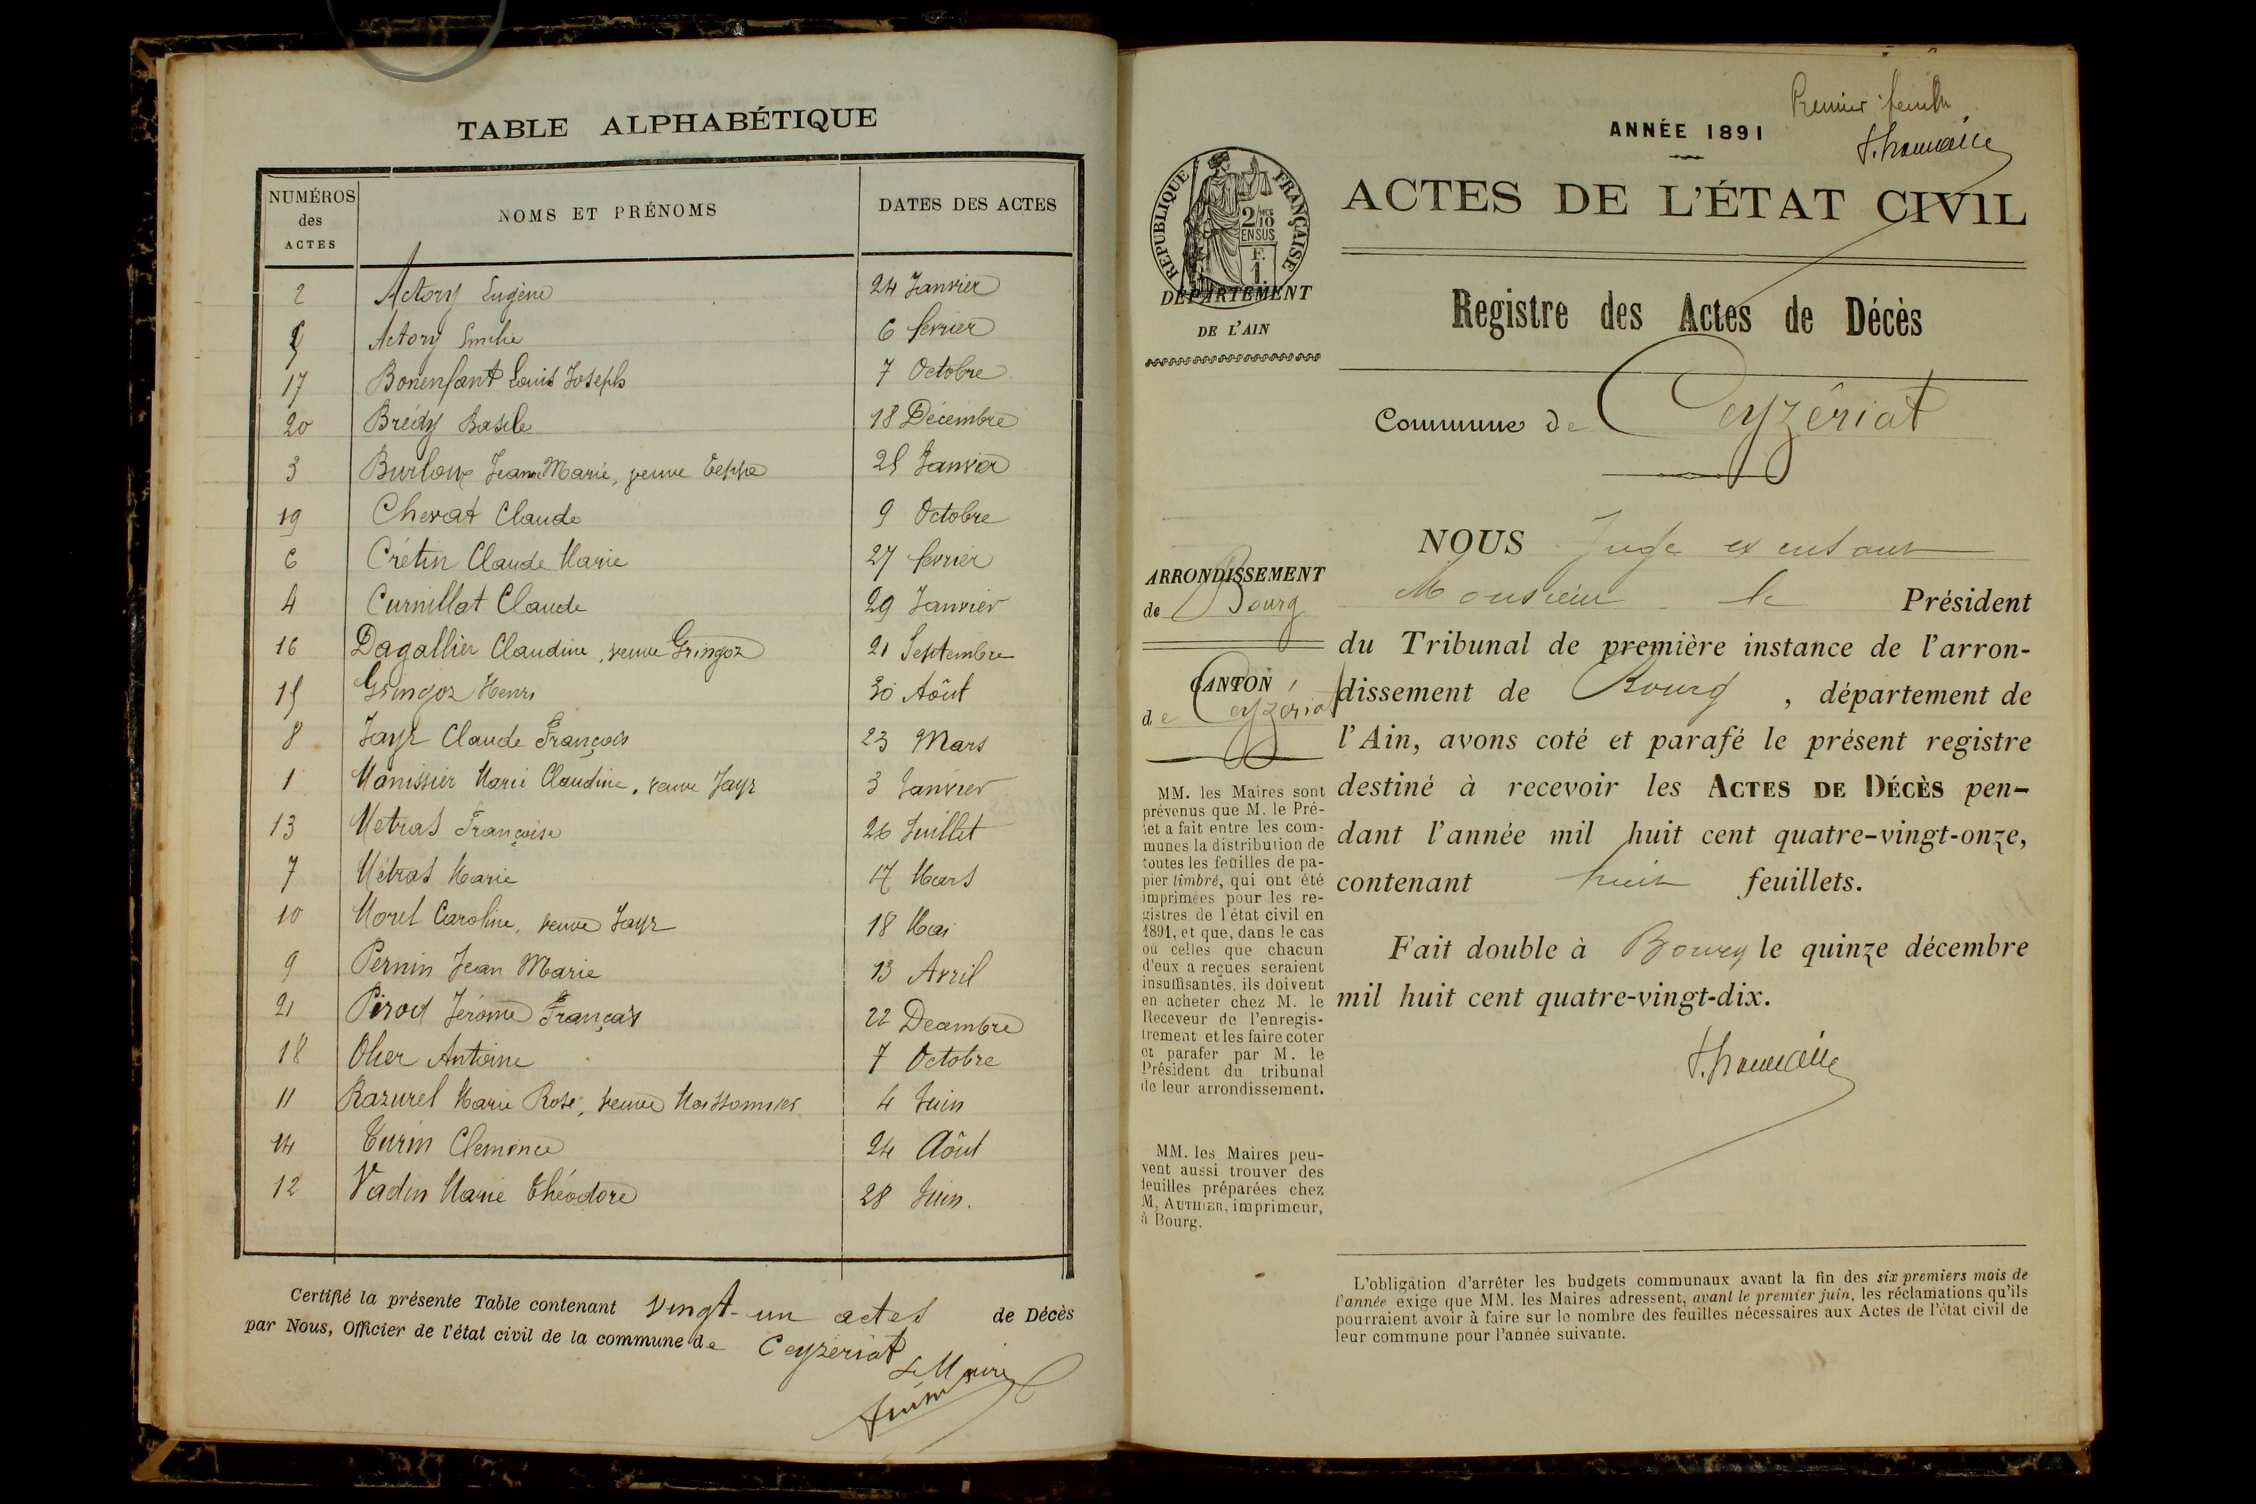 TABLE ALPHABÉTIQUE
NUMÉROS des ACTES NOMS ET PRÉNOMS DATES DES ACTES
2 Actory Eugène 24 Janvier
5 Actory Emilie 6 février
17 Bonenfant Louis Joseph 7 Octobre
20 Brédy Basile 18 Décembre
3 Burloux Jeanne Marie, veuve Teppe 25 Janvier
19 Chevat Claude 9 Octobre
6 Crétin Claude Marie 27 février
4 Curnillat Claude 29 Janvier
16 Dagallier Claudine, veuve Gringoz 21 Septembre
15 Gringoz Henri 30 Aôut
8 Jayr Claude François 23 Mars
1 Manissier Marie Claudine, veuve Jayr 3 Janvier
13 Metras Françoise 26 Juillet
7 Métras Marie 17 Mars
10 Morel Caroline, veuve Jayr 18 Mai
9 Pernin Jean Marie 13 Avril
21 Pirod Jérome François 22 Decembre
18 Olier Antoine 7 Octobre
11 Razurel Marie Rose, veuve Moissonnier 4 Juin
14 Turin Clemence 24 Aôut
12 Vadin Marie Théodore 28 Juin.
Certifié la présente Table contenant vingt-un actes de Décès
par Nous, Officier de l'état civil de la commune de Ceyzériat
Le Maire
Premier feuillet
ANNÉE 1891
RÉPUBLIQUE FRANÇAISE
2/10 EN SUS
F. 1.
ACTES DE L'ÉTAT CIVIL
DÉPARTEMENT
DE L'AIN
Registre des Actes de Décès
Commune de Ceyzériat
ARRONDISSEMENT
de Bourg
CANTON
de Ceyzériat
MM. les Maires sont
prévenus que M. le Pré-
fet a fait entre les com-
munes la distribution de
toutes les feuilles de pa-
pier timbré, qui ont été
imprimées pour les re-
gistres de l'état civil en
1891, et que, dans le cas
où celles que chacun
d'eux a reçues seraient
insuffisantes, ils doivent
en acheter chez M. le
Receveur de l'enregis-
trement et les faire coter
et parafer par M. le
Président du tribunal
de leur arrondissement.
MM. les Maires peu-
vent aussi trouver des
feuilles préparées chez
M. AUTHIER, imprimeur,
à Bourg.
NOUS Juge
Monsieur le Président
du Tribunal de première instance de l'arron-
dissement de Bourg, département de
l'Ain, avons coté et parafé le présent registre
destiné à recevoir les ACTES DE DÉCÈS pen-
dant l'année mil huit cent quatre-vingt-onze,
contenant huit feuillets.
Fait double à Bourg le quinze décembre
mil huit cent quatre-vingt-dix.
L'obligation d'arrêter les budgets communaux avant la fin des six premiers mois de
l'année exige que MM. les Maires adressent, avant le premier juin, les réclamations qu'ils
pourraient avoir à faire sur le nombre des feuilles nécessaires aux Actes de l'état civil de
leur commune pour l'année suivante.